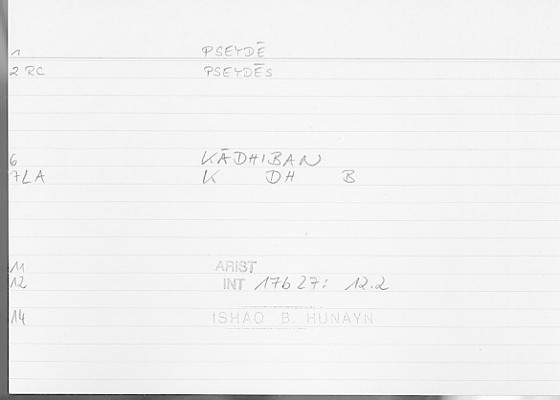 1 PSEYDĒ
2 RC PSEYDĒS
6 KĀDHIBAN
7 LA K DH B
11 ARIST
12 INT 17b 27: 12.2
14 ISHAQ B. HUNAYN